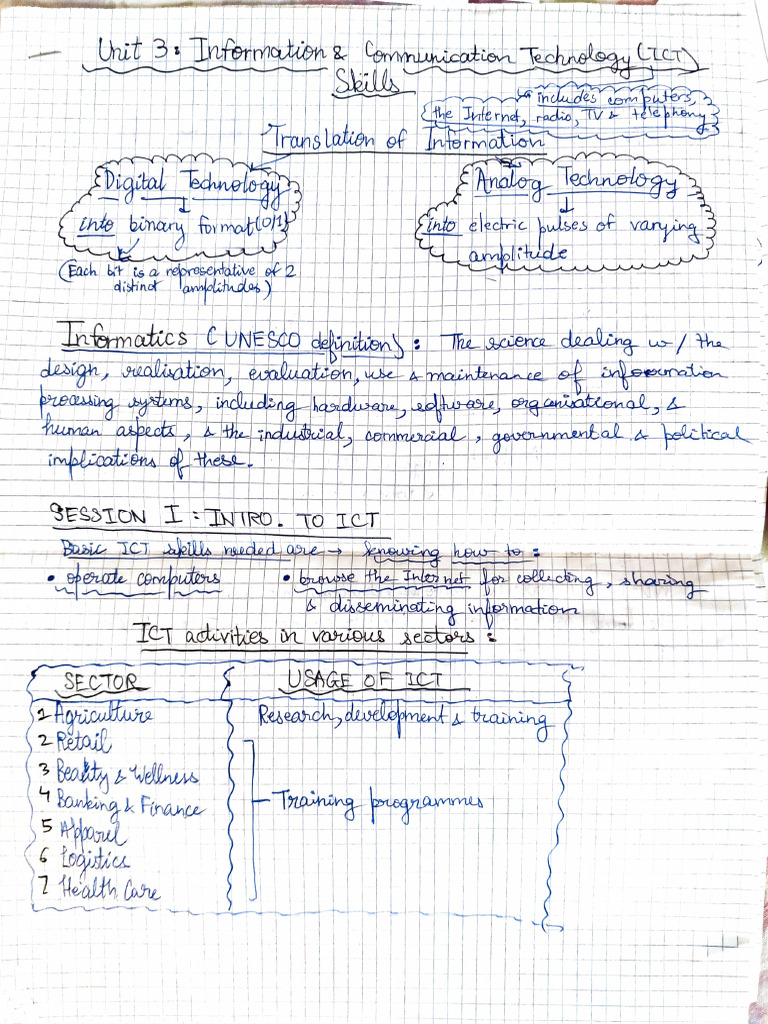 Unit 3: Information & Communication Technology (ICT)
Skills
includes computers,
the Internet, radio, TV & telephony
Translation of Information
Digital Technology
into binary format (0/1)
(Each bit is a representative of 2
distinct amplitudes)
Analog Technology
into electric pulses of varying
amplitude
Informatics (UNESCO definition): The science dealing w/ the
design, realisation, evaluation, use & maintenance of information
processing systems, including hardware, software, organisational, &
human aspects, & the industrial, commercial, governmental & political
implications of these.
SESSION I: INTRO. TO ICT
Basic ICT skills needed are → knowing how to:
• operate computers • browse the Internet for collecting, sharing
& disseminating information
ICT activities in various sectors:
SECTOR USAGE OF ICT
1 Agriculture Research, development & training
2 Retail
3 Beauty & Wellness
4 Banking & Finance Training programmes
5 Apparel
6 Logistics
7 Health Care